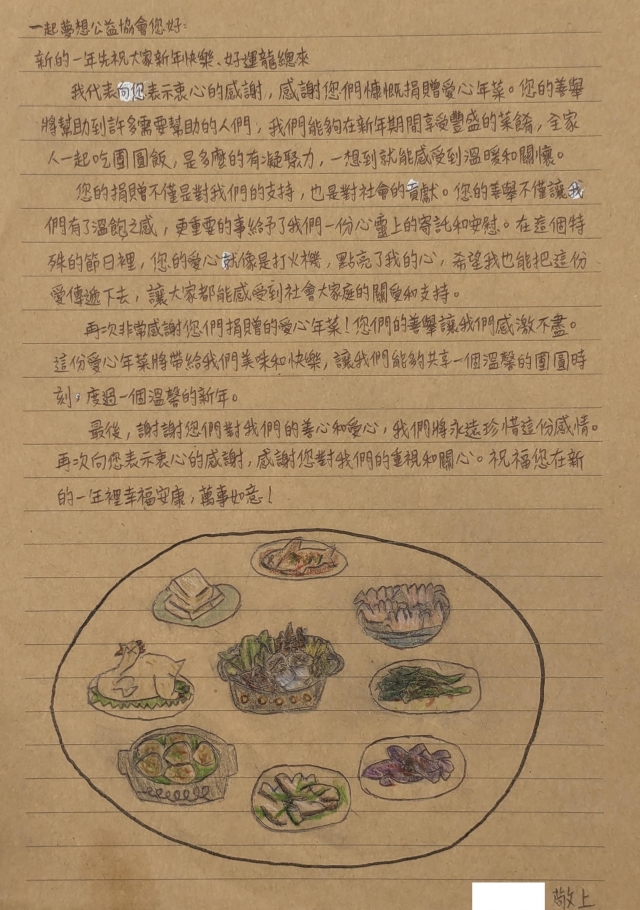 一起夢想公益協會您好:
新的一年先祝大家新年快樂、好運龍總來
我代表向您表示衷心的感謝,感謝您們慷慨捐贈愛心年菜。您的善舉
將幫助到許多需要幫助的人們,我們能夠在新年期間享受豐盛的菜餚,全家
人一起吃團圓飯,是多麼的有凝聚力,一想到就能感受到溫暖和關懷。
您的捐贈不僅是對我們的支持,也是對社會的貢獻。您的善舉不僅讓我
們有了溫飽之感,更重要的事給予了我們一份心靈上的寄託和安慰。在這個特
殊的節日裡,您的愛心就像是打火機,點亮了我的心,希望我也能把這份
愛傳遞下去,讓大家都能感受到社會大家庭的關愛和支持。
再次非常感謝您們捐贈的愛心年菜!您們的善舉讓我們感激不盡。
這份愛心年菜將帶給我們美味和快樂,讓我們能夠共享一個溫馨的團圓時
刻,度過一個溫馨的新年。
最後,謝謝您們對我們的善心和愛心,我們將永遠珍惜這份感情。
再次向您表示衷心的感謝,感謝您對我們的重視和關心。祝福您在新
的一年裡幸福安康,萬事如意!
敬上